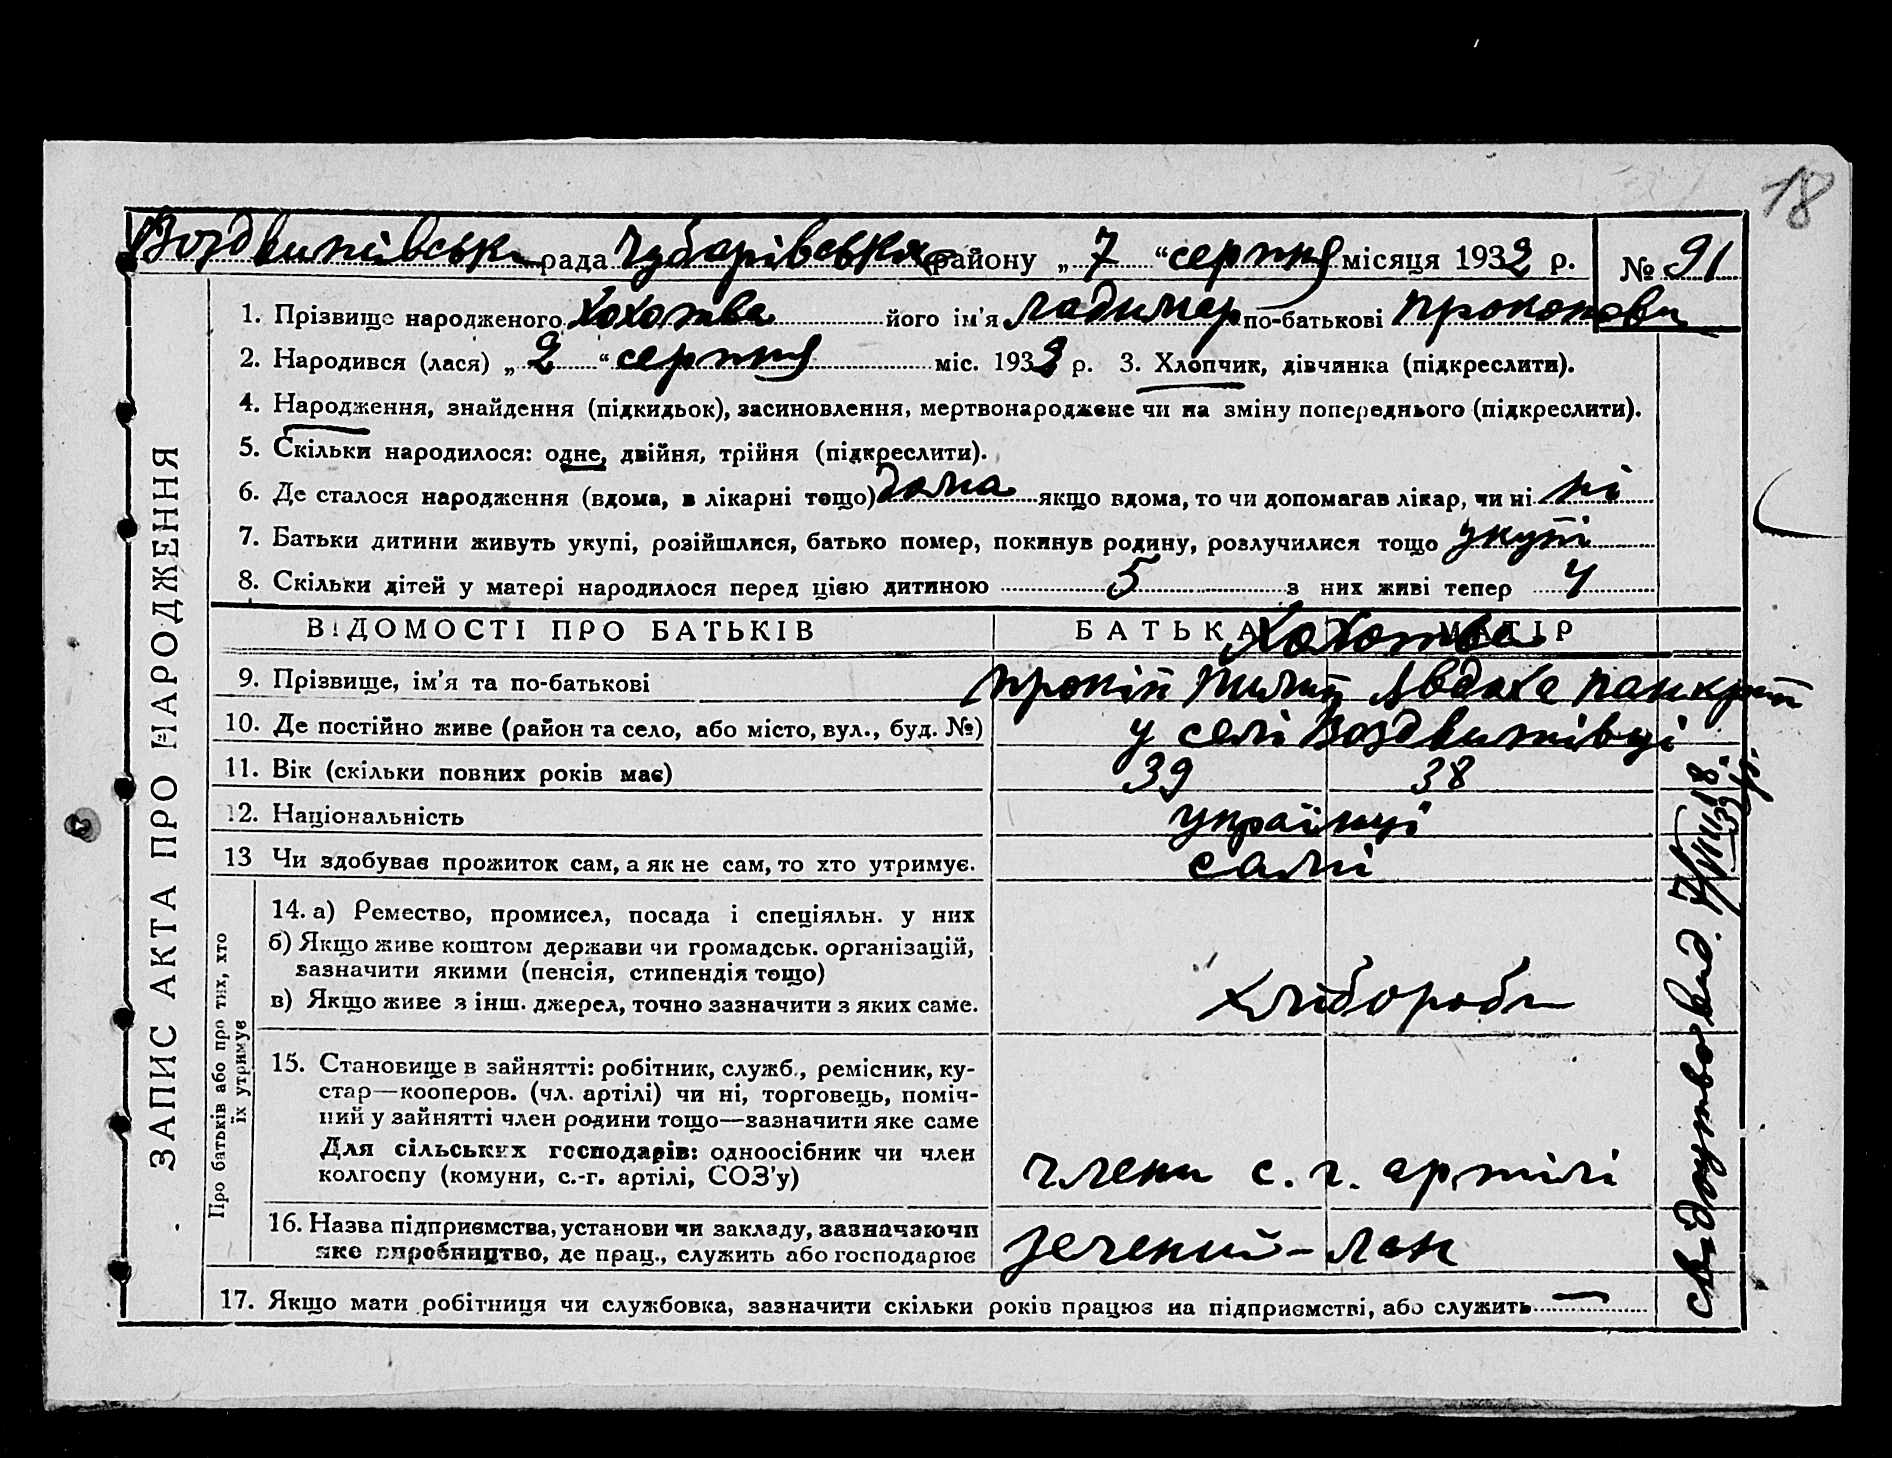 18
Воздвижівська рада Чубарівського району „ 7 “ серпня місяця 1932 р. № 91
1. Прізвище народженого Хохотва його ім'я по-батькові Прокопови
2. Народився (лася) „ 2 “ серпня міс. 1932 р. 3. Хлопчик, дівчинка (підкреслити).
4. Народження, знайдення (підкидьок), засиновлення, мертвонароджене чи на зміну попереднього (підкреслити).
5. Скільки народилося: одне, двійня, трійня (підкреслити).
6. Де сталося народження (вдома, в лікарні тощо) дома якщо вдома, то чи допомагав лікар, чи ні ні
7. Батьки дитини живуть укупі, розійшлися, батько помер, покинув родину, розлучилися тощо укупі
8. Скільки дітей у матері народилося перед цією дитиною 5 з них живі тепер 4
ВІДОМОСТІ ПРО БАТЬКІВ БАТЬКА МАТІР
Хохотва
9. Прізвище, ім'я та по-батькові Прокіп Авдоха Панкрат
10. Де постійно живе (район та село, або місто, вул., буд. №) у селі Воздвижівці
11. Вік (скільки повних років має) 39 38
12. Національність українці
13 Чи здобуває прожиток сам, а як не сам, то хто утримує. самі
14. а) Ремество, промисел, посада і спеціяльн. у них
б) Якщо живе коштом держави чи громадськ. організацій,
зазначити якими (пенсія, стипендія тощо)
в) Якщо живе з інш. джерел, точно зазначити з яких саме.
хлібороби
15. Становище в зайнятті: робітник, служб., ремісник, ку-
стар—кооперов. (чл. артілі) чи ні, торговець, поміч-
ний у зайнятті член родини тощо—зазначити яке саме
Для сільських господарів: одноосібник чи член
колгоспу (комуни, с.-г. артілі, СОЗ'у)
члени с. г. артілі
16. Назва підприємства, установи чи закладу, зазначаючи
яке виробництво, де прац., служить або господарює
Зелений-лан
17. Якщо мати робітниця чи службовка, зазначити скільки років працює на підприємстві, або служить —
ЗАПИС АКТА ПРО НАРОДЖЕННЯ
Про батьків або про тих, хто
їх утримує
свідоцтво вид. 7/VIII